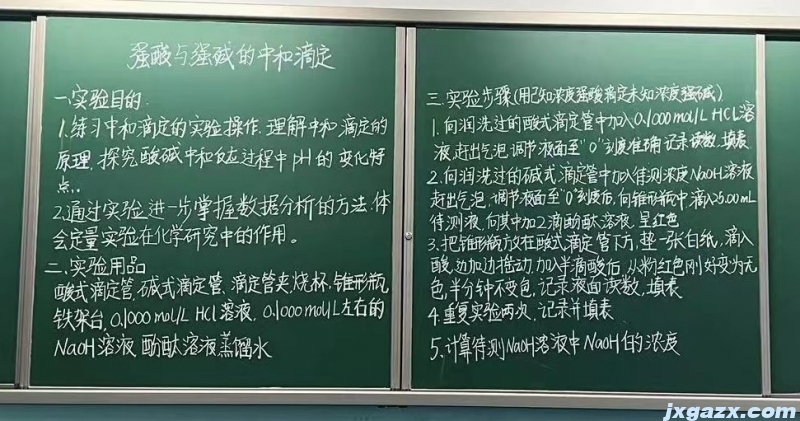 强酸与强碱的中和滴定
一.实验目的.
1.练习中和滴定的实验操作.理解中和滴定的
原理,探究酸碱中和反应过程中pH的变化特
点.
2.通过实验进一步掌握数据分析的方法,体
会定量实验在化学研究中的作用。
二.实验用品
酸式滴定管.碱式滴定管、滴定管夹.烧杯.锥形瓶,
铁架台.0.1000mol/L HCl溶液,0.1000mol/L左右的
NaOH溶液 酚酞溶液蒸馏水
三.实验步骤(用已知浓度强酸滴定未知浓度强碱)
1.向润洗过的酸式滴定管中加入0.1000mol/L HCl溶
液,赶出气泡,调节液面至"0"刻度准确记录读数,填表
2.向润洗过的碱式滴定管中加入待测浓度NaOH溶液
赶出气泡,调节液面至"0"刻度后,向锥形瓶中滴入25.00mL
待测液,向其中加2滴酚酞溶液,呈红色
3.把锥形瓶放在酸式滴定管下方,垫一张白纸,滴入
酸,边加边摇动,加入半滴酸后,从粉红色刚好变为无
色,半分钟不变色,记录液面读数,填表
4.重复实验两次,记录并填表
5.计算待测NaOH溶液中NaOH的浓度
jxgazx.com